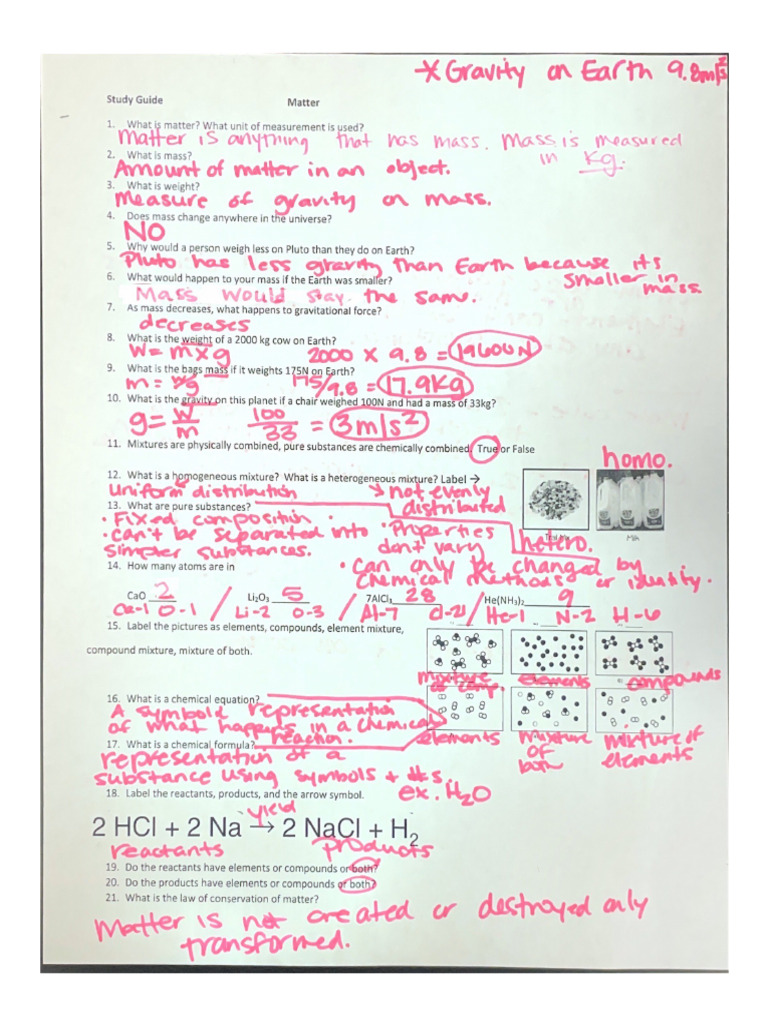 * Gravity on Earth 9.8m/s²
Study Guide Matter
1. What is matter? What unit of measurement is used?
Matter is anything that has mass. Mass is measured
in Kg.
2. What is mass?
Amount of matter in an object.
3. What is weight?
Measure of gravity on mass.
4. Does mass change anywhere in the universe?
NO
5. Why would a person weigh less on Pluto than they do on Earth?
Pluto has less gravity than Earth because its
smaller in
mass.
6. What would happen to your mass if the Earth was smaller?
Mass would stay the same.
7. As mass decreases, what happens to gravitational force?
decreases
8. What is the weight of a 2000 kg cow on Earth?
W = m x g 2000 x 9.8 = 19600N
9. What is the bags mass if it weights 175N on Earth?
m = w/g 175/9.8 = 17.9Kg
10. What is the gravity on this planet if a chair weighed 100N and had a mass of 33kg?
g = W/m 100/33 = 3m/s²
11. Mixtures are physically combined, pure substances are chemically combined. True or False
homo.
12. What is a homogeneous mixture? What is a heterogeneous mixture? Label →
uniform distribution → not evenly
distributed
13. What are pure substances?
• Fixed composition
• can't be separated into
simpler substances.
• Properties
don't vary
hetero.
Milk
14. How many atoms are in
• can only be changed by
chemical methods or identity.
CaO 2 Li₂O₃ 5 7AlCl₃ 28 He(NH₃)₂ 9
Ca-1 O-1 / Li-2 O-3 / Al-7 Cl-21 / He-1 N-2 H-6
15. Label the pictures as elements, compounds, element mixture,
compound mixture, mixture of both.
mixture
of comp.
elements
compounds
16. What is a chemical equation?
A symbolic representation
of what happens in a chemical
reaction.
elements
mixture
of
both
mixture of
elements
17. What is a chemical formula?
representation of a
substance using symbols + #s.
ex. H₂O
18. Label the reactants, products, and the arrow symbol.
yield
2 HCl + 2 Na → 2 NaCl + H₂
reactants products
19. Do the reactants have elements or compounds or both?
20. Do the products have elements or compounds or both?
21. What is the law of conservation of matter?
Matter is not created or destroyed only
transformed.